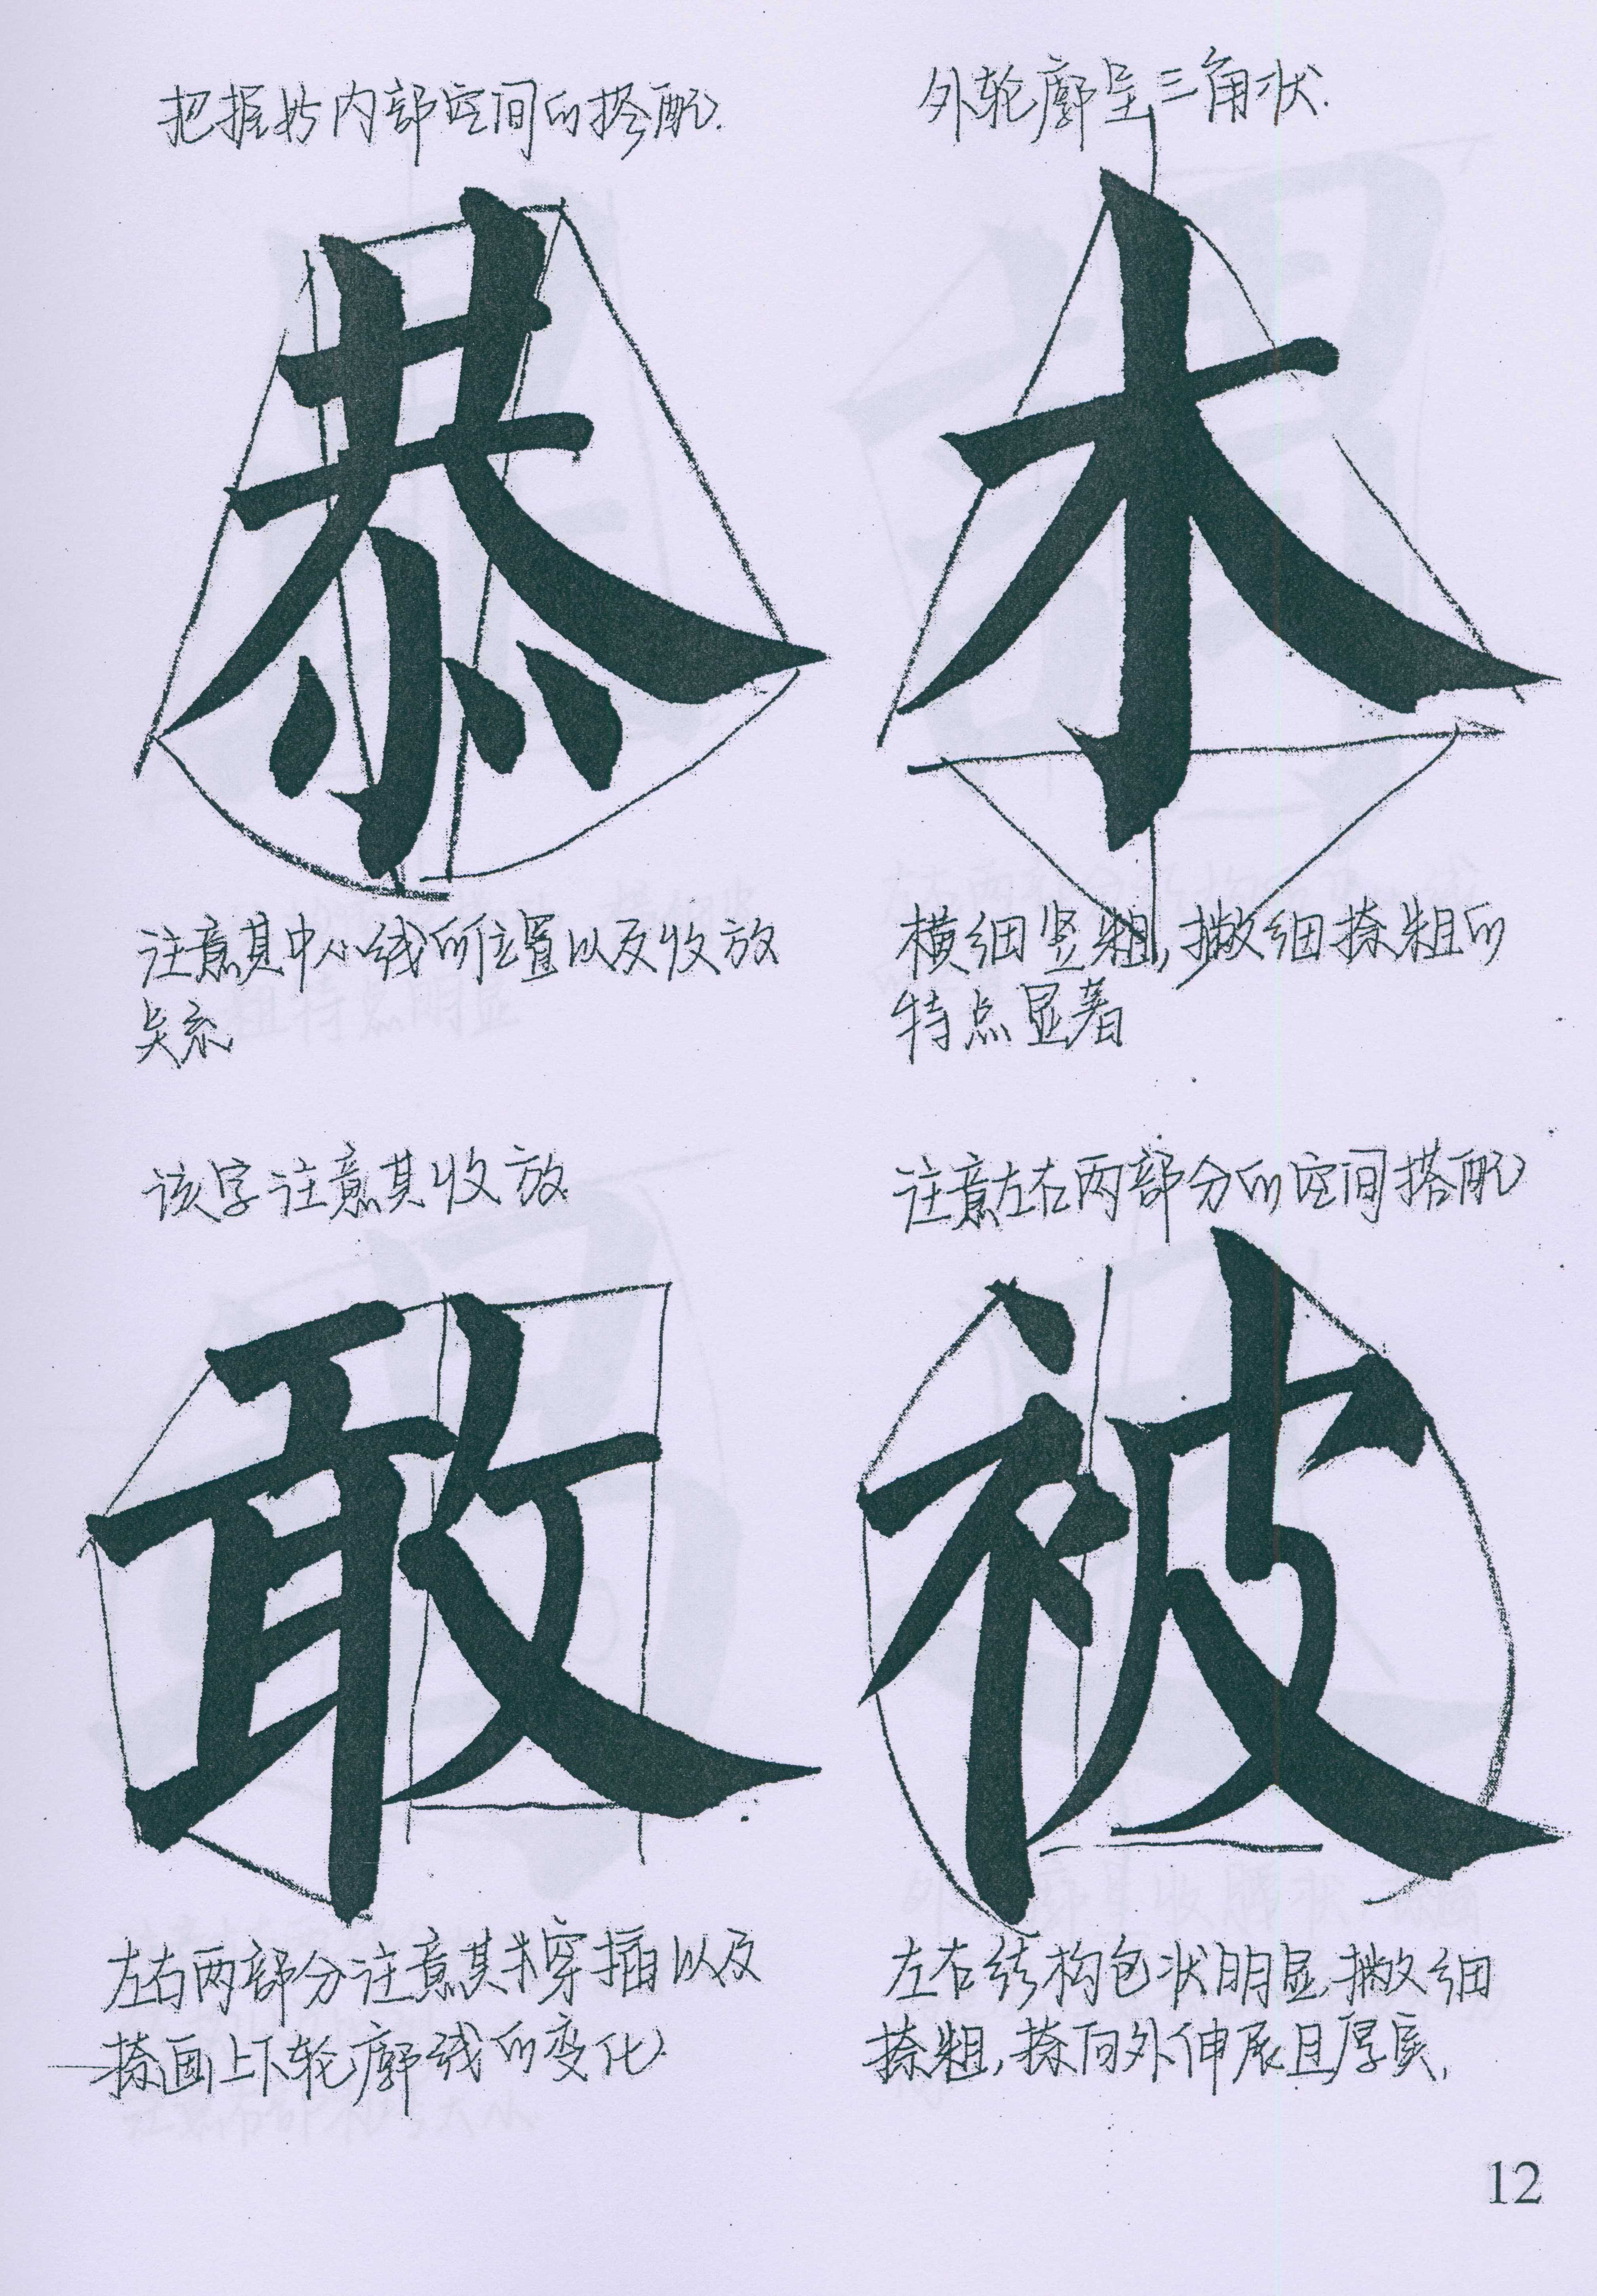 把握好内部空间的搭配.
外轮廓呈三角状.
恭
木
注意其中心线所位置以及收放
关系
横细竖粗,撇细捺粗的
特点显著
该字注意其收放
注意左右两部分的空间搭配
敢
被
左右两部分注意其穿插以及
捺画上下轮廓线的变化
左右结构包状明显,撇细
捺粗,捺向外伸展且厚实,
12